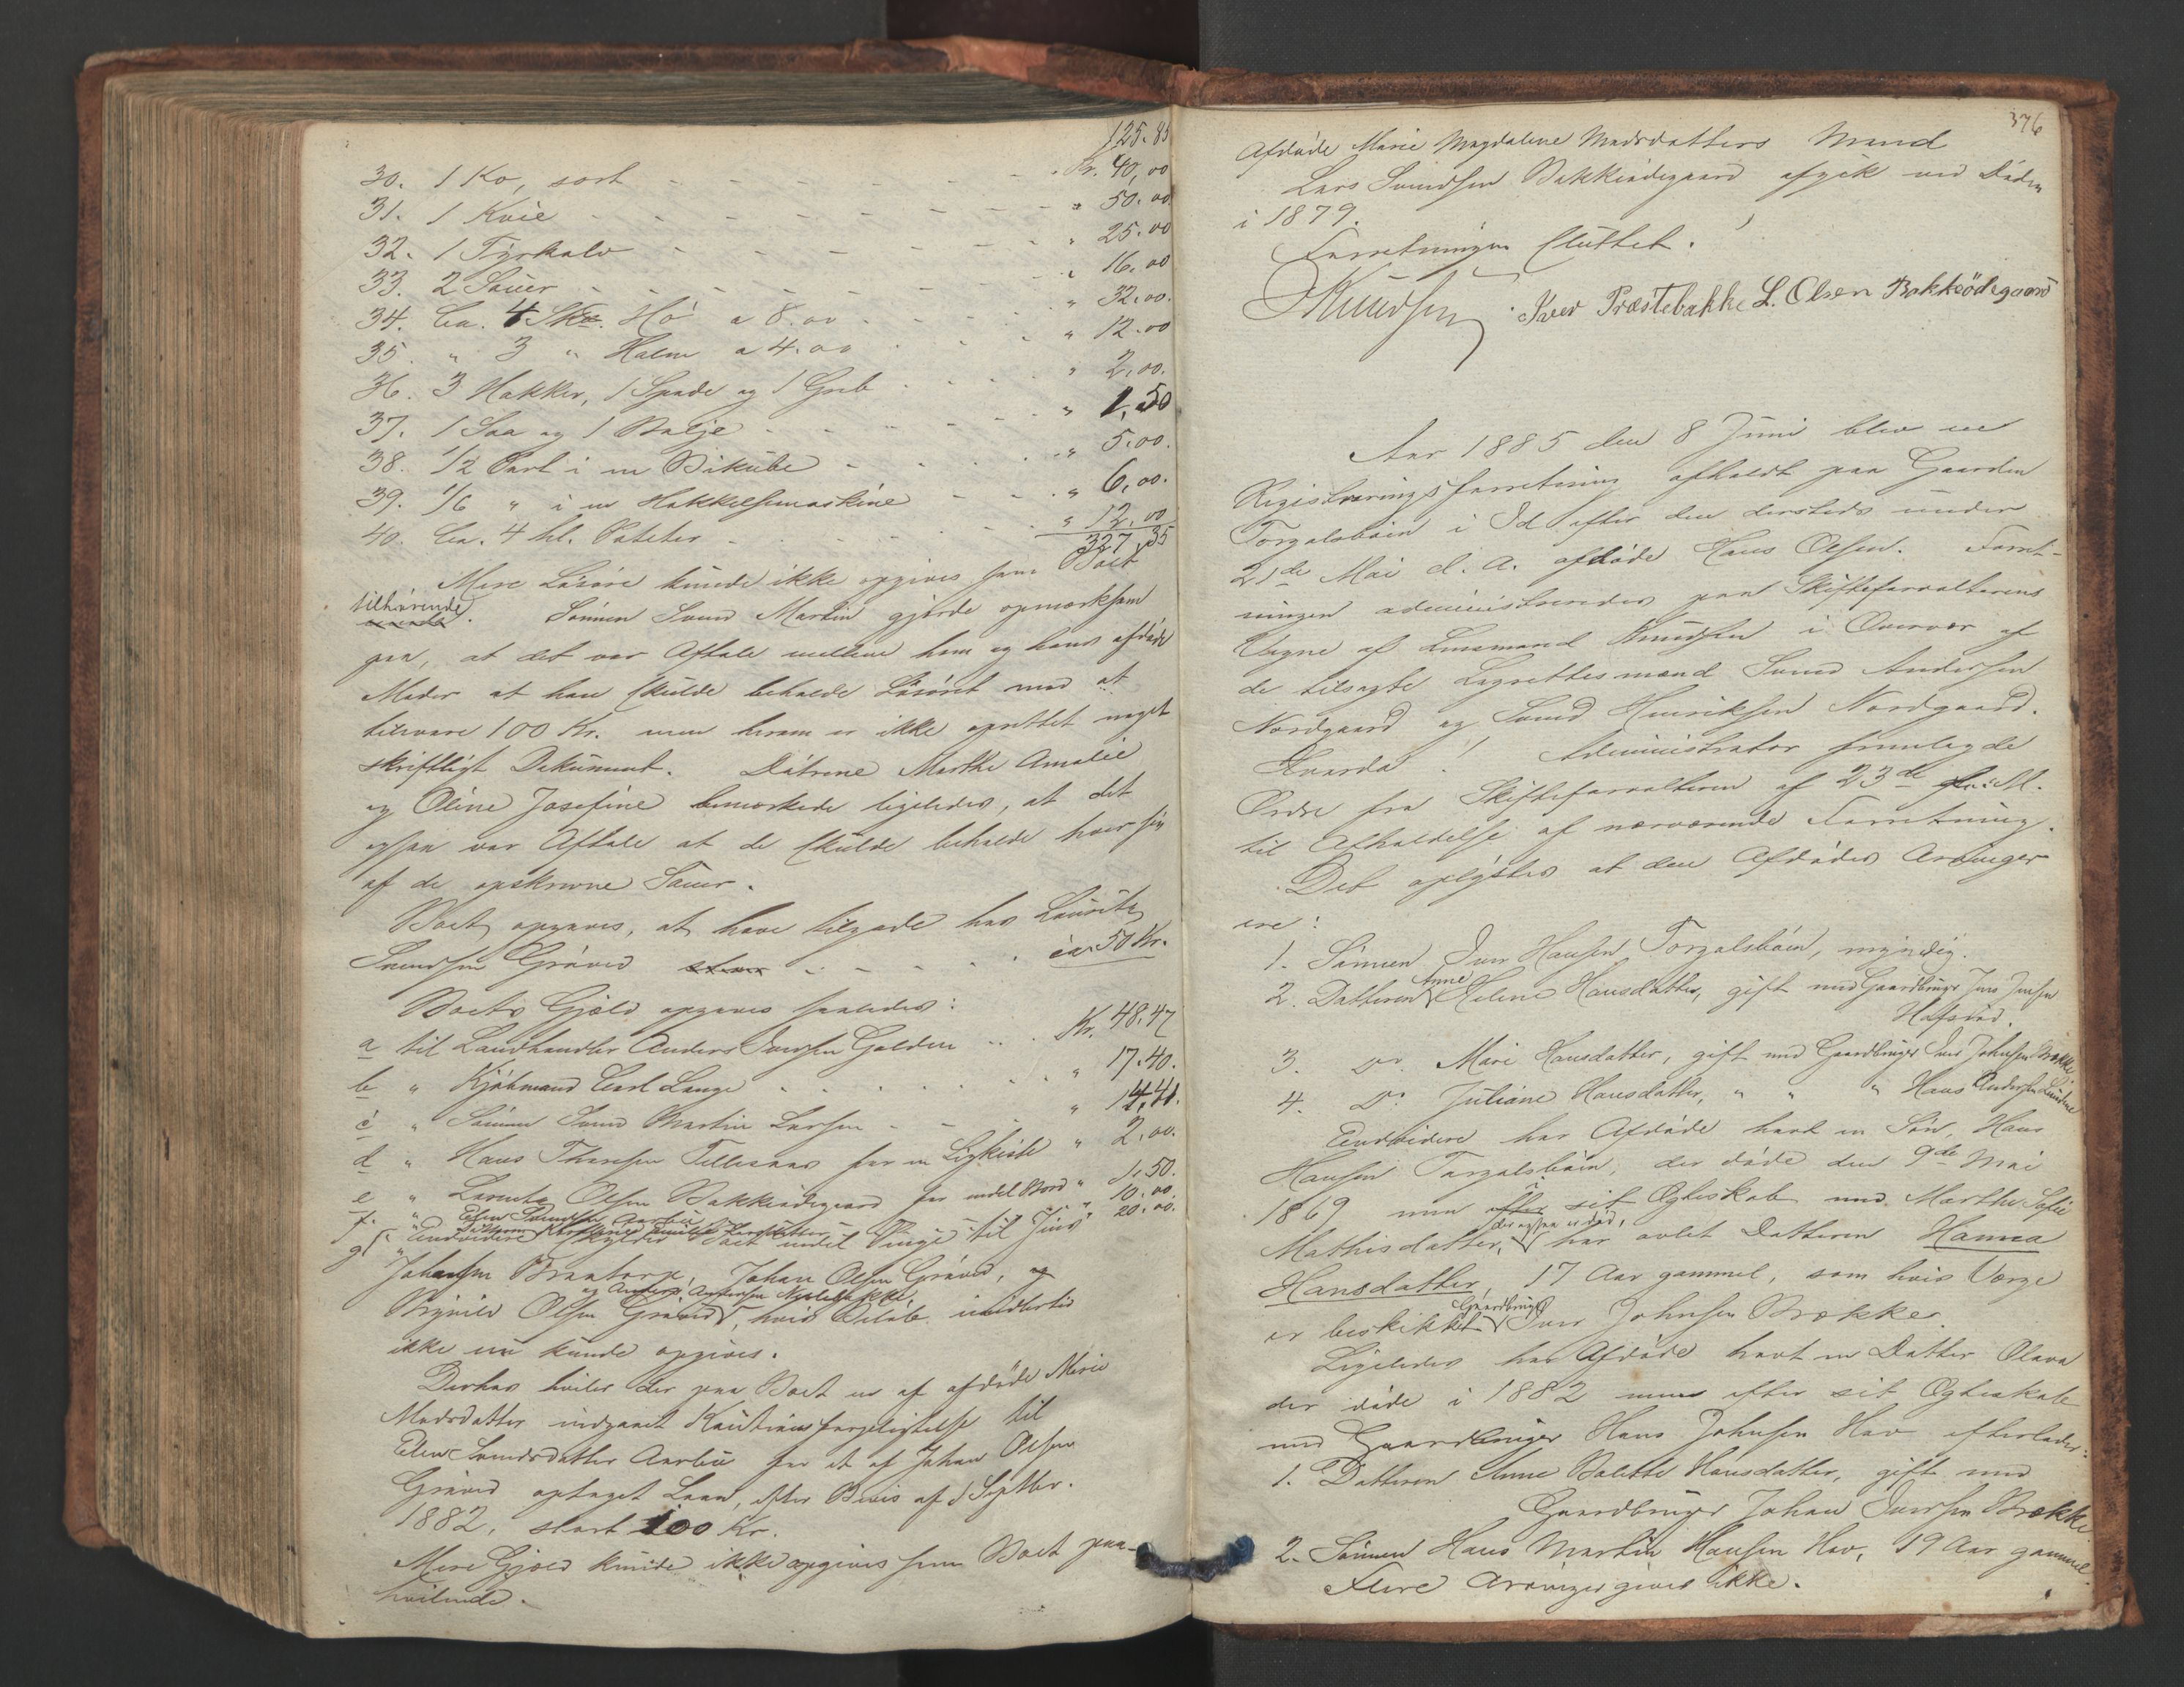 125.85
30. 1 Ko, sort - - - - - - Kr. 40,00
31. 1 Kvie - - - - - - - " 50.00
32. 1 Tyrkalv - - - - - - " 25.00
33. 2 Sauer - - - - - - " 16.00
34. Ca. 4 Sk℔. Hö a 8.00 - - - " 32.00.
35. " 3 " Halm a 4.00 - - - " 12.00
36. 3 Hakker, 1 Spade og 1 Greb - - - " 2,00.
37. 1 Saa og 1 Balje - - - - - " 1,50
38. 1/2 Part i en Bikube - - - - " 5.00.
39. 1/6 " i en Hakkelsemaskine - - - " 6,00.
40. Ca. 4 hl. Poteter - - - - - " 12.00
327,35
Mere Lösöre kunde ikke opgives som Boet
tilhörende. Sönnen Svend Martin gjorde opmærksom
paa, at det var Aftale mellem ham og hans afdöde
Moder at han skulde beholde Lösöret mod at
tilsvare 100 Kr. men herom er ikke oprettet noget
skriftligt Dokument. Döttrene Marthe Amalie
og Oline Josefine bemærkede ligeledes, at det
ogsaa var Aftale at de skulde beholde hver sin
af de opskrevne Sauer.
Boet opgaves, at have tilgode hos Lauritz
Svendsen Gröved - - - - ca. 50 Kr.
Boets Gjæld opgaves saaledes:
a til Landhandler Anders Iversen Golden - - Kr. 48.47
b " Kjöbmand Carl Lange - - - - - " 17.40.
c " Sönnen Svend Martin Larsen - - - " 14,41.
d " Hans Thoresen Tillesaas for en Ligkiste " 2,00.
e " Lorentz Olsen Bakkeödegaard for endel Bord " 1.50.
f. " Elen Svendsen Aarbu " 10.00.
g " Datteren Larsdatter " 20.00.
Endvidere skylder Boet endel Penge til Jens
Johansen Brontorp, Johan Olsen Gröved, og
og Anders Andersen
Brynild Olsen Gröved, hvis Belöb imidlertid
ikke nu kunde opgives.
Derhos hviler der paa Boet en af afdöde Marie
Madsdatter indgaaet Kautionsforpligtelse til
Elen Svendsdatter Aarbu for et af Johan Olsen
Gröved optaget Laan, efter Bevis af d Septbr.
1882, stort 100 Kr.
Mere Gjæld kunde ikke opgives som Boet paa-
hvilende.
376
Afdöde Marie Magdalene Madsdatters Mand
Lars Svendsen Bakkeödegaard afgik ved Döden
i 1879.
Forretningen sluttet.
Knudsen Iver Præstebakke L. Olsen Bakkeödegaard
Aar 1885 den 8 Juni blev en
Registreringsforretning afholdt paa Gaarden
Torgalsböin i Id efter den dersteds under
21de Mai d. A. afdöde Hans Olsen. Forret-
ningen administreredes paa Skifteforvalterens
Vegne af Lensmand Knudsen i Overvær af
de tilsagte Lagrettesmænd Svend Andersen
Nordgaard og Svend Henriksen Nordgaard.
Hvorda! Administrator fremlagde
Ordre fra Skifteforvalteren af 23de f. M.
til Afholdelse af nærværende Forretning.
Det oplystes at den Afdödes Arvinger
ere:
1. Sönnen Iver Hansen Torgalsböin, myndig.
2. Datteren Anne Helene Hansdatter, gift med Gaardbruger Jens Jensen
Hafsröd.
3. Do. Mari Hansdatter, gift med Gaardbruger Iver Johnsen Brække
4. Do. Juliane Hansdatter, " " " Hans Andersen
Endvidere har Afdöde havt en Sön, Hans
Hansen Torgalsböin, der döde den 9de Mai
1869 men i sit Ægteskab med Marthe Sofie
Mathisdatter, der ogsaa er död, har avlet Datteren Hanna
Hansdatter, 17 Aar gammel, som hvis Verge
er beskikket Gaardbruger Iver Johnsen Brække.
Ligeledes har Afdöde havt en Datter Olava
der döde i 1882 men efter sit Ægteskab
med Gaardbruger Hans Johnsen Hov efterlader:
1. Datteren Anne Bolette Hansdatter, gift med
Gaardbruger Johan Iversen Brække
2. Sönnen Hans Martin Hansen Hov, 19 Aar gammel.
Flere Arvinger gives ikke.